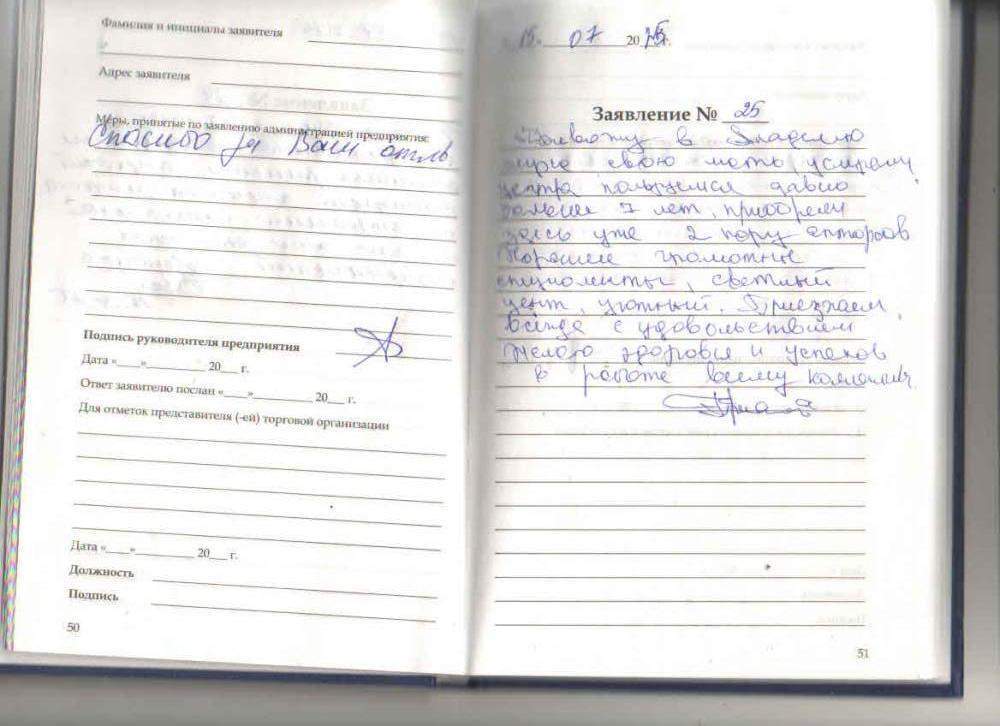 Фамилия и инициалы заявителя
Адрес заявителя
Меры, принятые по заявлению администрацией предприятия:
Спасибо за Ваш отзыв
Подпись руководителя предприятия
Дата «____»__________ 20___ г.
Ответ заявителю послан «____»__________ 20___ г.
Для отметок представителя (-ей) торговой организации
Дата «____»__________ 20___ г.
Должность
Подпись
50
15. 07 2025г.
Заявление № 25
в
свою мать услугами
центра пользуемся давно
более 7 лет, приобрели
здесь уже 2 пару аппаратов
Хорошие грамотные
специалисты, светлый
центр, уютный. Приезжаем
всегда с удовольствием
Желаю здоровья и успехов
в работе всему
51